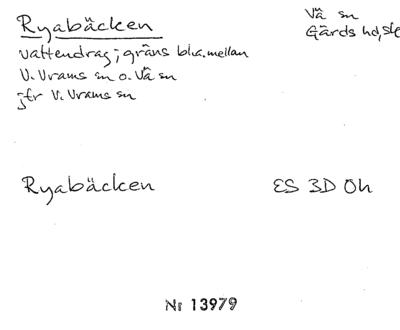 Ryabäcken
vattendrag; gräns bl.a. mellan
V. Vrams sn o. Vä sn
jfr V. Vrams sn
Vä sn
Gärds hd, Skå
Ryabäcken
ES 3D Öh
Nr 13979